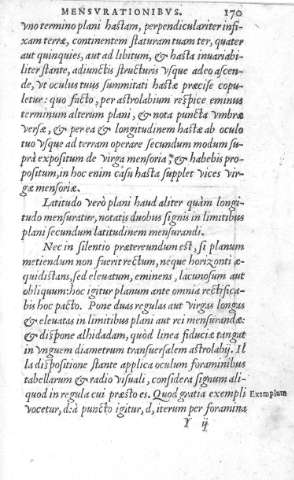 MENSVRATIONIBVS. 170
vno termino plani hastam, perpendiculariter infi-
xam terræ, continentem staturam tuam ter, quater
aut quinquies, aut ad libitum, & hasta inuariabi-
liter stante, adiunctis structuris vsque adeo ascen-
de, vt oculus tuus summitati hastæ præcise copu-
letur: quo facto, per astrolabium respice eminus
terminum alterum plani, & nota puncta vmbræ
versæ, & per ea & longitudinem hastæ ab oculo
tuo vsque ad terram operare secundum modum su-
prà expositum de virga mensoria, & habebis pro-
positum, in hoc enim casu hasta supplet vices vir-
gæ mensoriæ.
Latitudo verò plani haud aliter quàm longi-
tudo mensuratur, notatis duobus signis in limitibus
plani secundum latitudinem mensurandi.
Nec in silentio prætereundum est, si planum
metiendum non fuerit rectum, neque horizonti æ-
quidistans, sed eleuatum, eminens, lacunosum aut
obliquum: hoc igitur planum ante omnia rectifica-
bis hoc pacto. Pone duas regulas aut virgas longas
& eleuatas in limitibus plani aut rei mensurandæ:
& dispone alhidadam, quòd linea fiduciæ tangat
in vnguem diametrum transuersalem astrolabij. Il
la dispositione stante applica oculum foraminibus
tabellarum & radio visuali, considera signum ali-
quod in regula cui præsto es. Quod gratia exempli
Exemplum
vocetur, d: à puncto igitur, d, iterum per foramina
Y ij